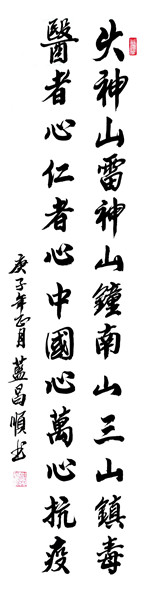 火神山雷神山鐘南山三山鎮毒
醫者心仁者心中國心萬心抗疫
庚子年正月藍昌順书